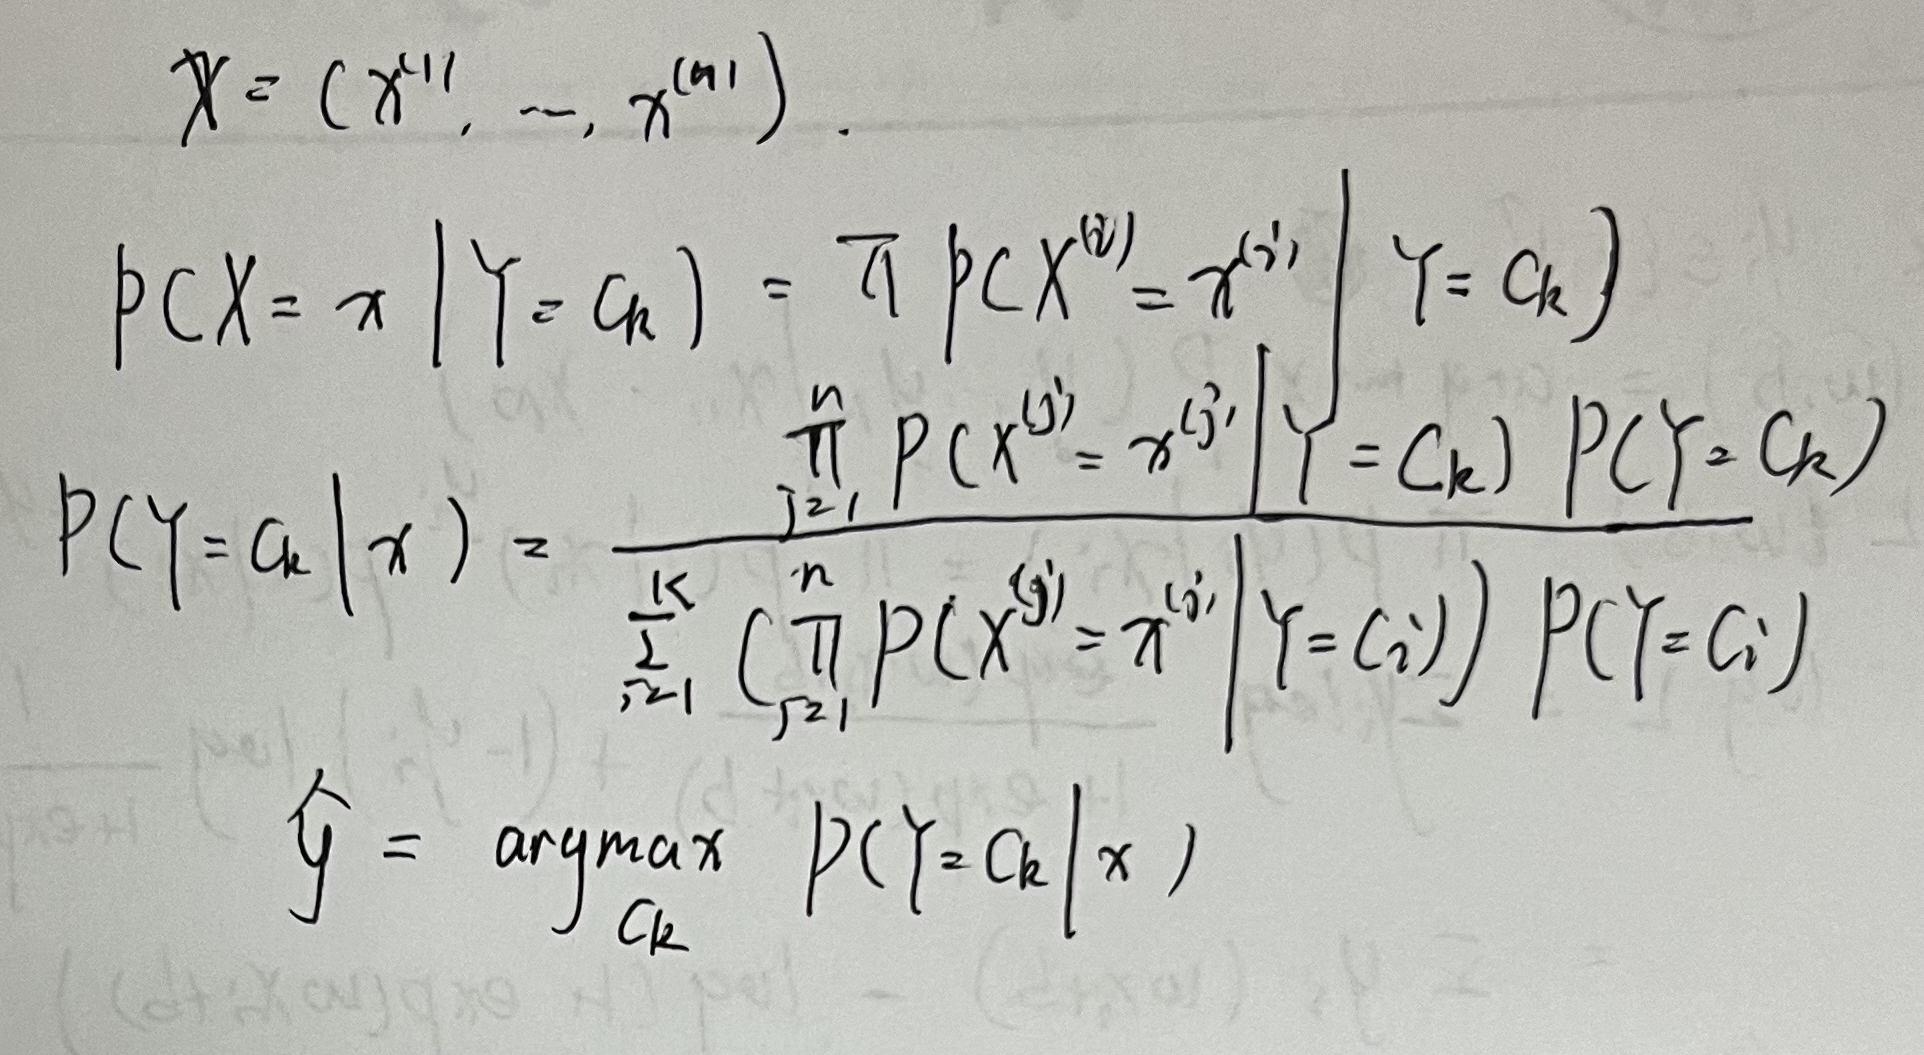 X = (x^{(1)}, ..., x^{(n)}).
P(X = x | Y = C_k) = ∏ P(X^{(j)} = x^{(j)} | Y = C_k)
P(Y = C_k | x) = \frac{∏_{j=1}^{n} P(X^{(j)} = x^{(j)} | Y = C_k) P(Y = C_k)}{∑_{i=1}^{K} (∏_{j=1}^{n} P(X^{(j)} = x^{(j)} | Y = C_i)) P(Y = C_i)}
ŷ = argmax_{C_k} P(Y = C_k | x)